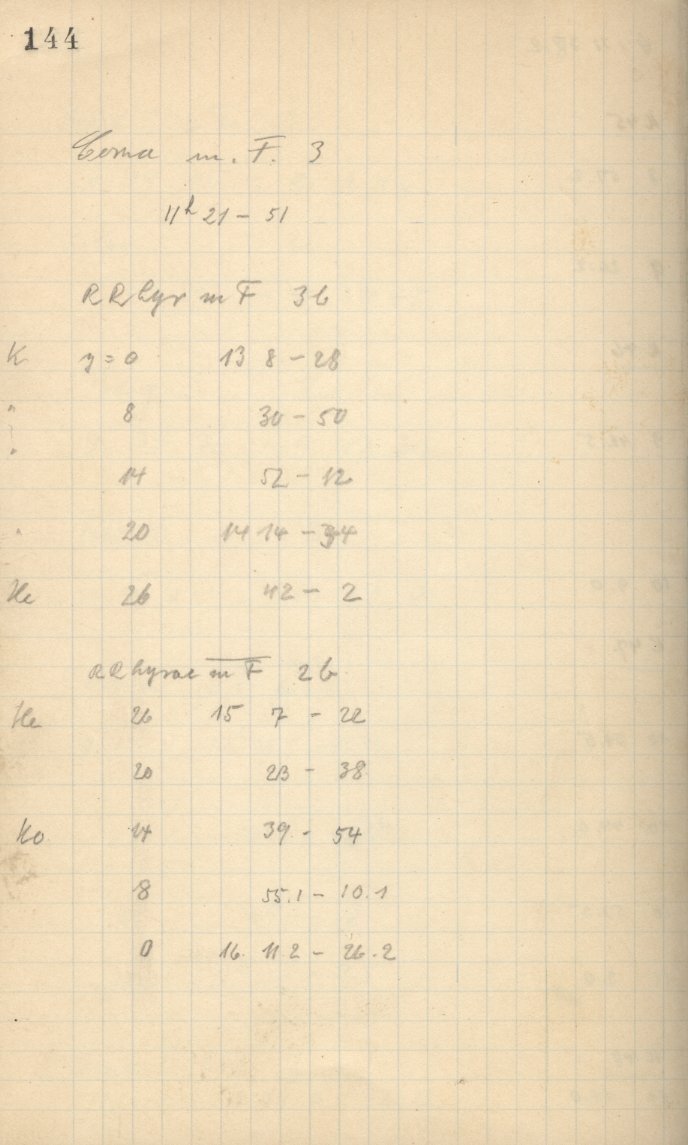 144
Coma m. F. 3
11h 21 - 51
RR Lyr m F 3b
K y = 0 13 8 - 28
" 8 30 - 50
" 14 52 - 12
" 20 14 14 - 34
He 26 42 - 2
RR Lyrae m F 2b
He 26 15 7 - 22
20 23 - 38
Ko 14 39 - 54
8 55.1 - 10.1
0 16. 11.2 - 26.2